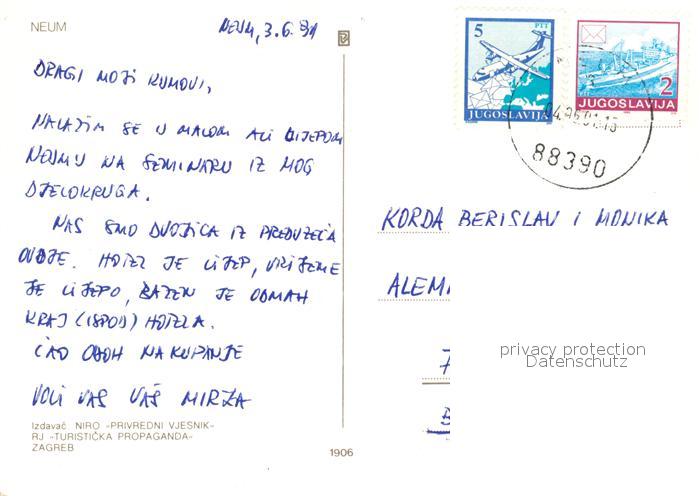 NEUM
NEUM, 3.6.91
DRAGI MOJI KUMOVI,
NALAZIM SE U MALOM ALI LIJEPOM
NEUMU NA SEMINARU IZ MOG
DJELOKRUGA.
NAS SMO DVOJICA IZ PREDUZEĆA
OVDJE. HOTEL JE LIJEP, VRIJEME
JE LIJEPO, BAZEN JE ODMAH
KRAJ (ISPOD) HOTELA.
ĆAO ODOH NA KUPANJE
VOLI VAS VAŠ MIRZA
Izdavač NIRO »PRIVREDNI VJESNIK«
RJ »TURISTIČKA PROPAGANDA«
ZAGREB
1906
5 PTT
JUGOSLAVIJA
2
JUGOSLAVIJA
88390
KORDA BERISLAV I MONIKA
ALEM
7
privacy protection
Datenschutz